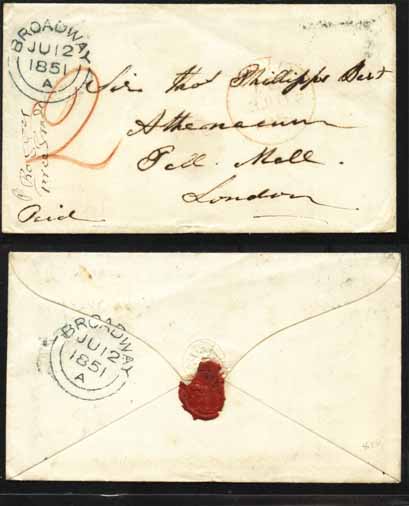 BROADWAY
JU 12
1851
A
2
Sir Thos Phillipps Bart
Athenaeum
Pall Mall.
London
Paid
BROADWAY
JU 12
1851
A